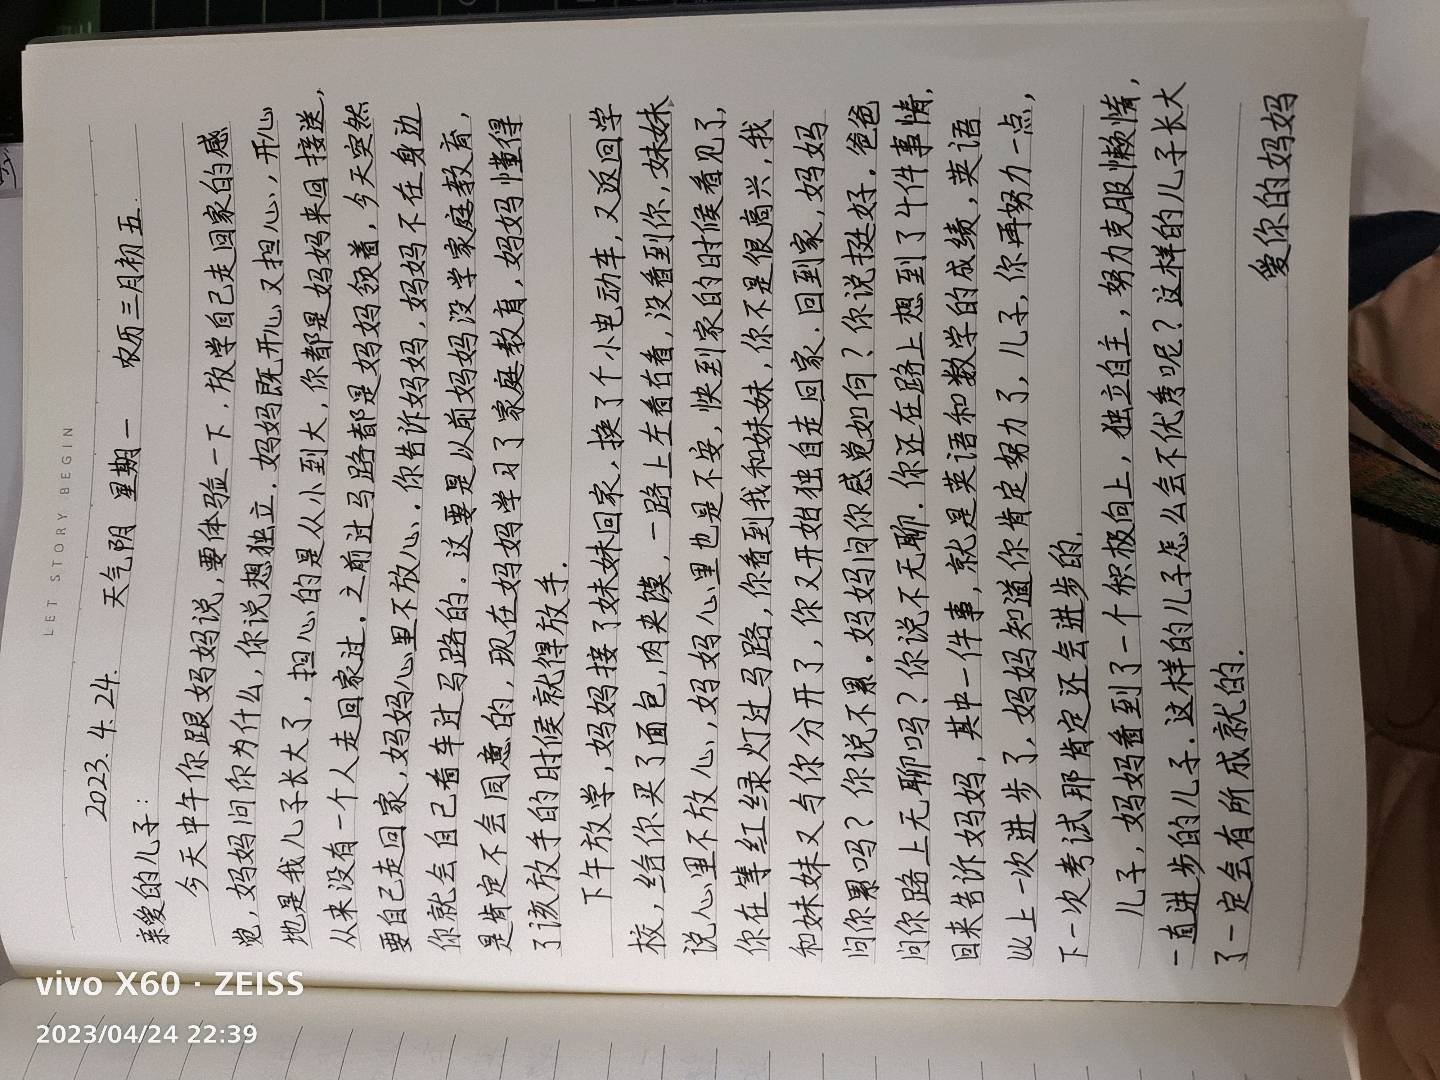 LET STORY BEGIN
2023.4.24. 天气阴 星期一 农历三月初五.
亲爱的儿子:
今天中午你跟妈妈说,要体验一下,放学自己走回家的感
觉,妈妈问你为什么,你说想独立.妈妈既开心又担心,开心
地是我儿子长大了,担心的是从小到大,你都是妈妈来回接送,
从来没有一个人走回家过.之前过马路都是妈妈领着,今天突然
要自己走回家,妈妈心里不放心.你告诉妈妈,妈妈不在身边
你就会自己看车过马路的.这要是以前妈妈没学家庭教育,
是肯定不会同意的,现在妈妈学习了家庭教育,妈妈懂得
了该放手的时候就得放手.
下午放学,妈妈接了妹妹回家,换了个小电动车,又返回学
校,给你买了面包,肉夹馍,一路上左看右看,没看到你,妹妹
说心里不放心,妈妈心里也是不安,快到家的时候看见了,
你在等红绿灯过马路,你看到我和妹妹,你不是很高兴,我
和妹妹又与你分开了,你又开始独自走回家.回到家,妈妈
问你累吗?你说不累.妈妈问你感觉如何?你说挺好.爸爸
问你路上无聊吗?你说不无聊.你还在路上想到了4件事情,
回来告诉妈妈,其中一件事,就是英语和数学的成绩,英语
比上一次进步了,妈妈知道你肯定努力了,儿子,你再努力一点,
下一次考试那肯定还会进步的.
儿子,妈妈看到了一个积极向上,独立自主,努力克服懒惰,
一直进步的儿子.这样的儿子怎么会不优秀呢?这样的儿子长大
了一定会有所成就的.
爱你的妈妈
vivo X60 · ZEISS
2023/04/24 22:39